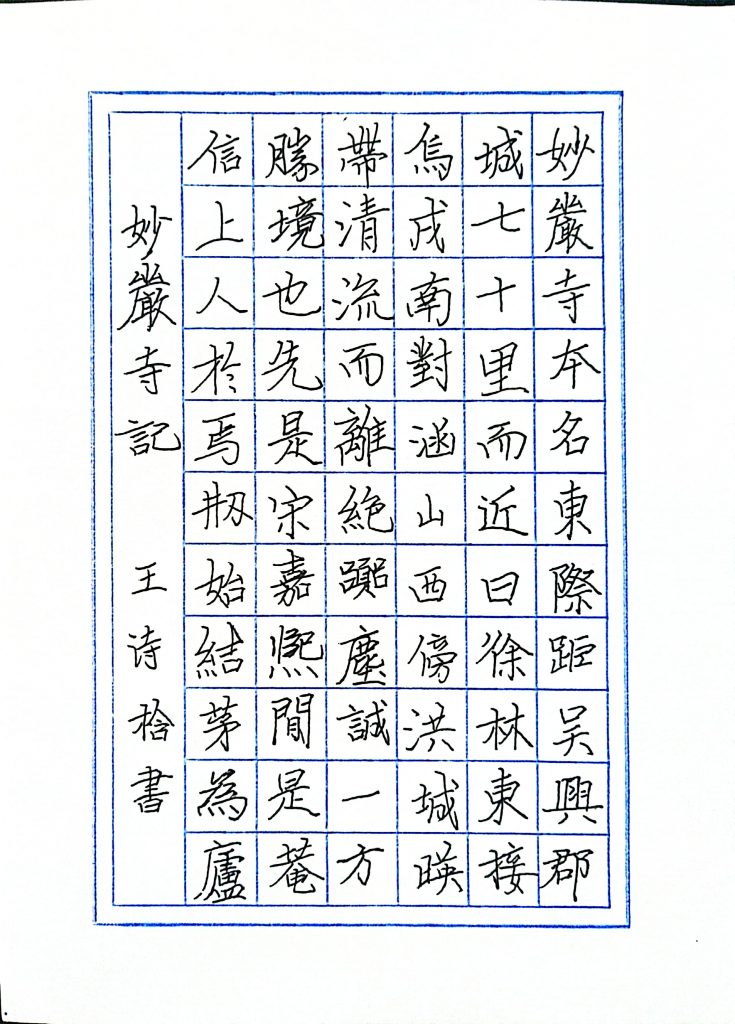 妙巖寺本名東際距吳興郡
城七十里而近曰徐林東接
烏戍南對涵山西傍洪城暎
帶清流而離絶囂塵誠一方
勝境也先是宋嘉熙間是菴
信上人於焉刱始結茅為廬
妙巖寺記 王诗棯書